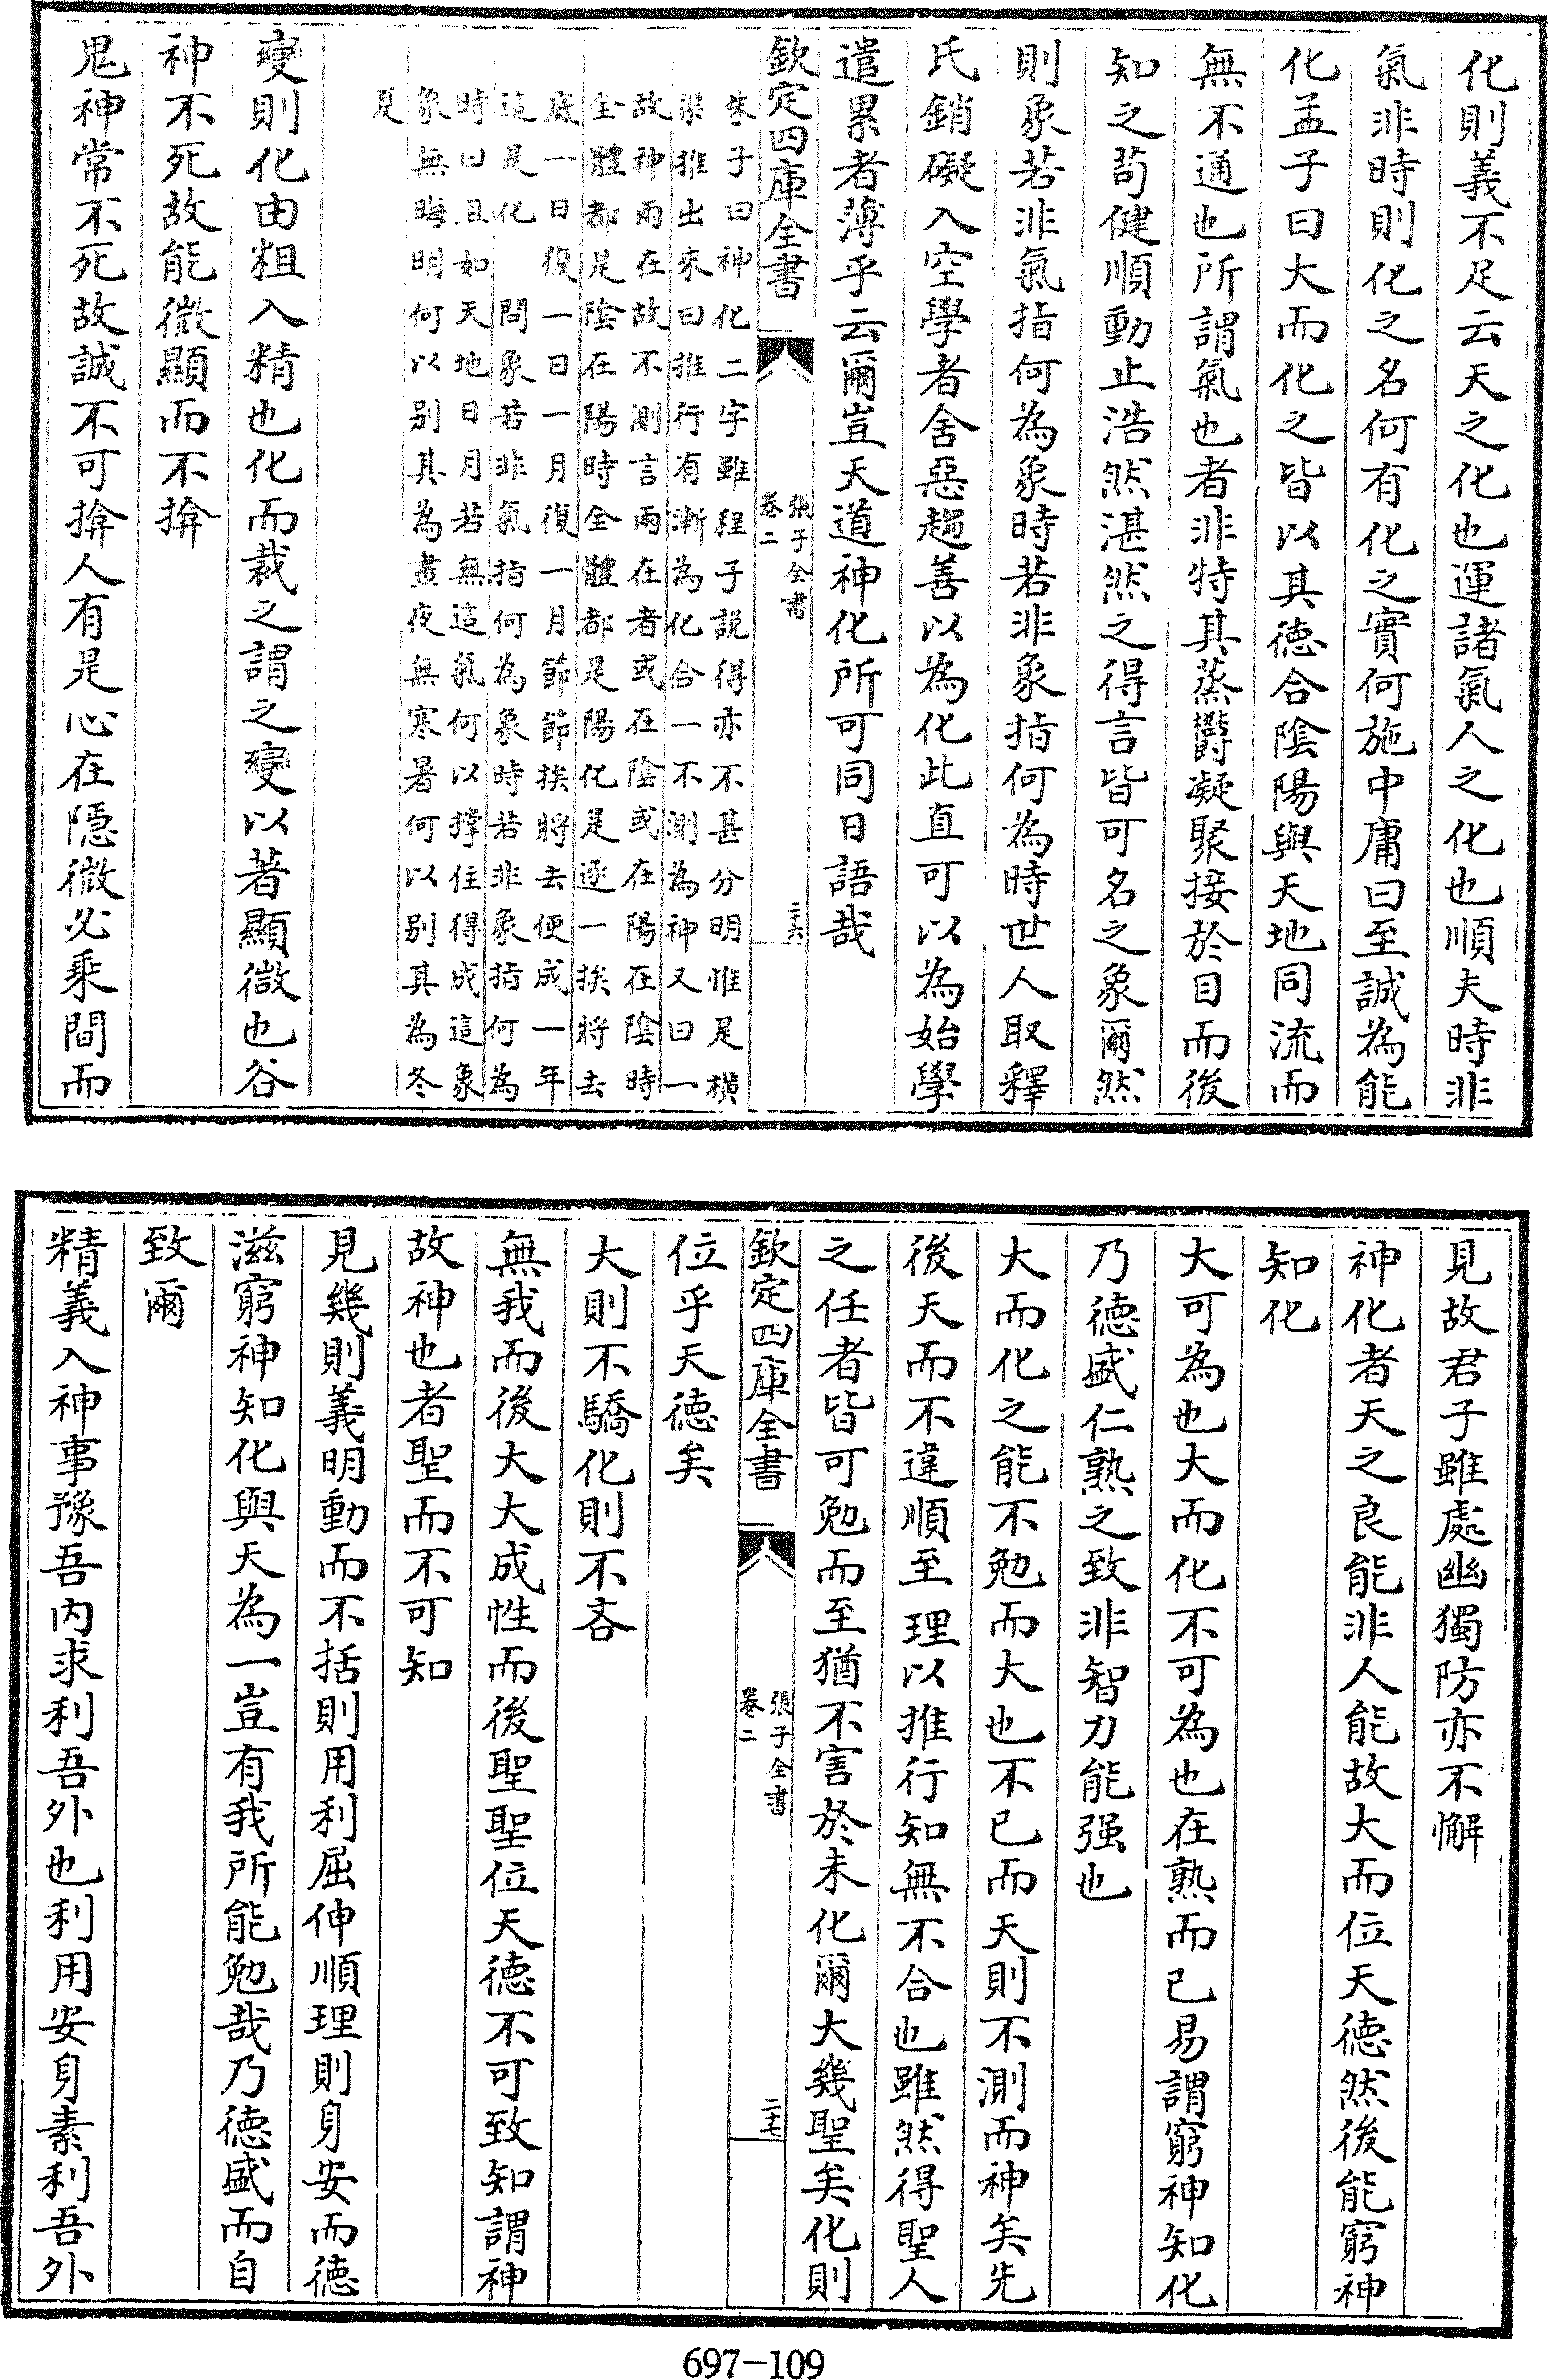 化則義不足云天之化也運諸氣人之化也順夫時非
氣非時則化之名何有化之實何施中庸曰至誠為能
化孟子曰大而化之皆以其徳合隂陽與天地同流而
無不通也所謂氣也者非特其蒸鬱凝聚接於目而後
知之茍健順動止浩然湛然之得言皆可名之象爾然
則象若非氣指何為象時若非象指何為時世人取釋
氏銷礙入空學者舍惡趨善以為化此直可以為始學
遣累者薄乎云爾豈天道神化所可同日語哉
欽定四庫全書
張子全書
卷二
二十六
朱子曰神化二字雖程子説得亦不甚分明惟是横
渠推出來曰推行有漸為化合一不測為神又曰一
故神兩在故不測言兩在者或在隂或在陽在隂時
全體都是隂在陽時全體都是陽化是逐一挨將去
底一日復一日一月復一月節節挨將去便成一年
這是化 問象若非氣指何為象時若非象指何為
時曰且如天地日月若無這氣何以撑住得成這象
象無晦明何以别其為晝夜無寒暑何以别其為冬
夏
變則化由粗入精也化而裁之謂之變以著顯微也谷
神不死故能微顯而不揜
鬼神常不死故誠不可揜人有是心在隱微必乘間而
見故君子雖處幽獨防亦不懈
神化者天之良能非人能故大而位天徳然後能窮神
知化
大可為也大而化不可為也在熟而已易謂窮神知化
乃徳盛仁熟之致非智力能强也
大而化之能不勉而大也不已而天則不測而神矣先
後天而不違順至理以推行知無不合也雖然得聖人
之任者皆可勉而至猶不害於未化爾大幾聖矣化則
欽定四庫全書
張子全書
卷二
二十七
位乎天徳矣
大則不驕化則不吝
無我而後大大成性而後聖聖位天徳不可致知謂神
故神也者聖而不可知
見幾則義明動而不括則用利屈伸順理則身安而徳
滋窮神知化與天為一豈有我所能勉哉乃徳盛而自
致爾
精義入神事豫吾内求利吾外也利用安身素利吾外
697-109